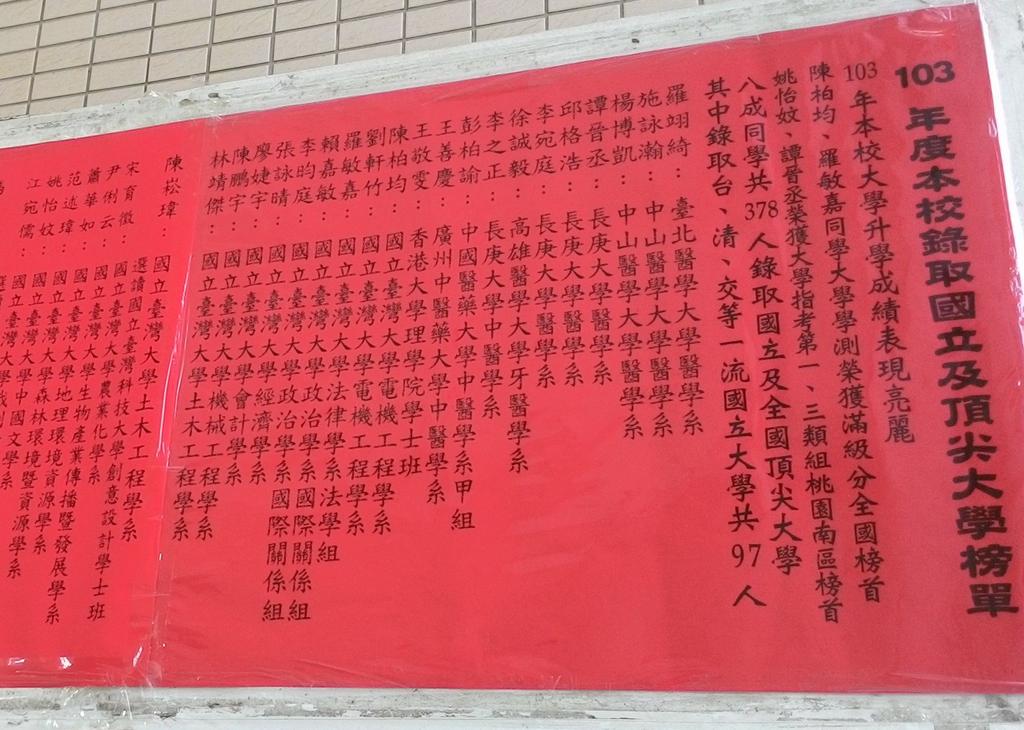 103 年度本校錄取國立及頂尖大學榜單
103 年本校大學升學成績表現亮麗
陳柏均、羅敏嘉同學大學學測榮獲滿級分全國榜首
姚怡妏、譚晉丞榮獲大學指考第一、三類組桃園南區榜首
八成同學共 378 人錄取國立及全國頂尖大學
其中錄取台、清、交等一流國立大學共 97 人
羅翊綺：臺北醫學大學醫學系
施詠瀚：中山醫學大學醫學系
楊博凱：中山醫學大學醫學系
譚晉丞：長庚大學醫學系
邱格浩：長庚大學醫學系
李宛庭：長庚大學醫學系
徐誠毅：高雄醫學大學牙醫學系
李之正：長庚大學中醫學系
彭柏諭：中國醫藥大學中醫學系甲組
王善慶：廣州中醫藥大學中醫學系
王敬雯：香港大學理學院學士班
陳柏均：國立臺灣大學電機工程學系
劉軒竹：國立臺灣大學電機工程學系
羅敏嘉：國立臺灣大學法律學系法學組
賴嘉敏：國立臺灣大學政治學系國際關係組
李昀庭：國立臺灣大學政治學系國際關係組
張詠晴：國立臺灣大學經濟學系
廖婕宇：國立臺灣大學會計學系
陳鵬宇：國立臺灣大學機械工程學系
林靖傑：國立臺灣大學土木工程學系
陳崧瑋：國立臺灣大學土木工程學系
宋育徵：選讀國立臺灣科技大學創意設計學士班
尹俐云：國立臺灣大學農業化學系
蕭華如：國立臺灣大學生物產業傳播暨發展學系
范述瑋：國立臺灣大學地理環境資源學系
姚怡妏：國立臺灣大學森林環境暨資源學系
江宛儒：國立臺灣大學中國文學系